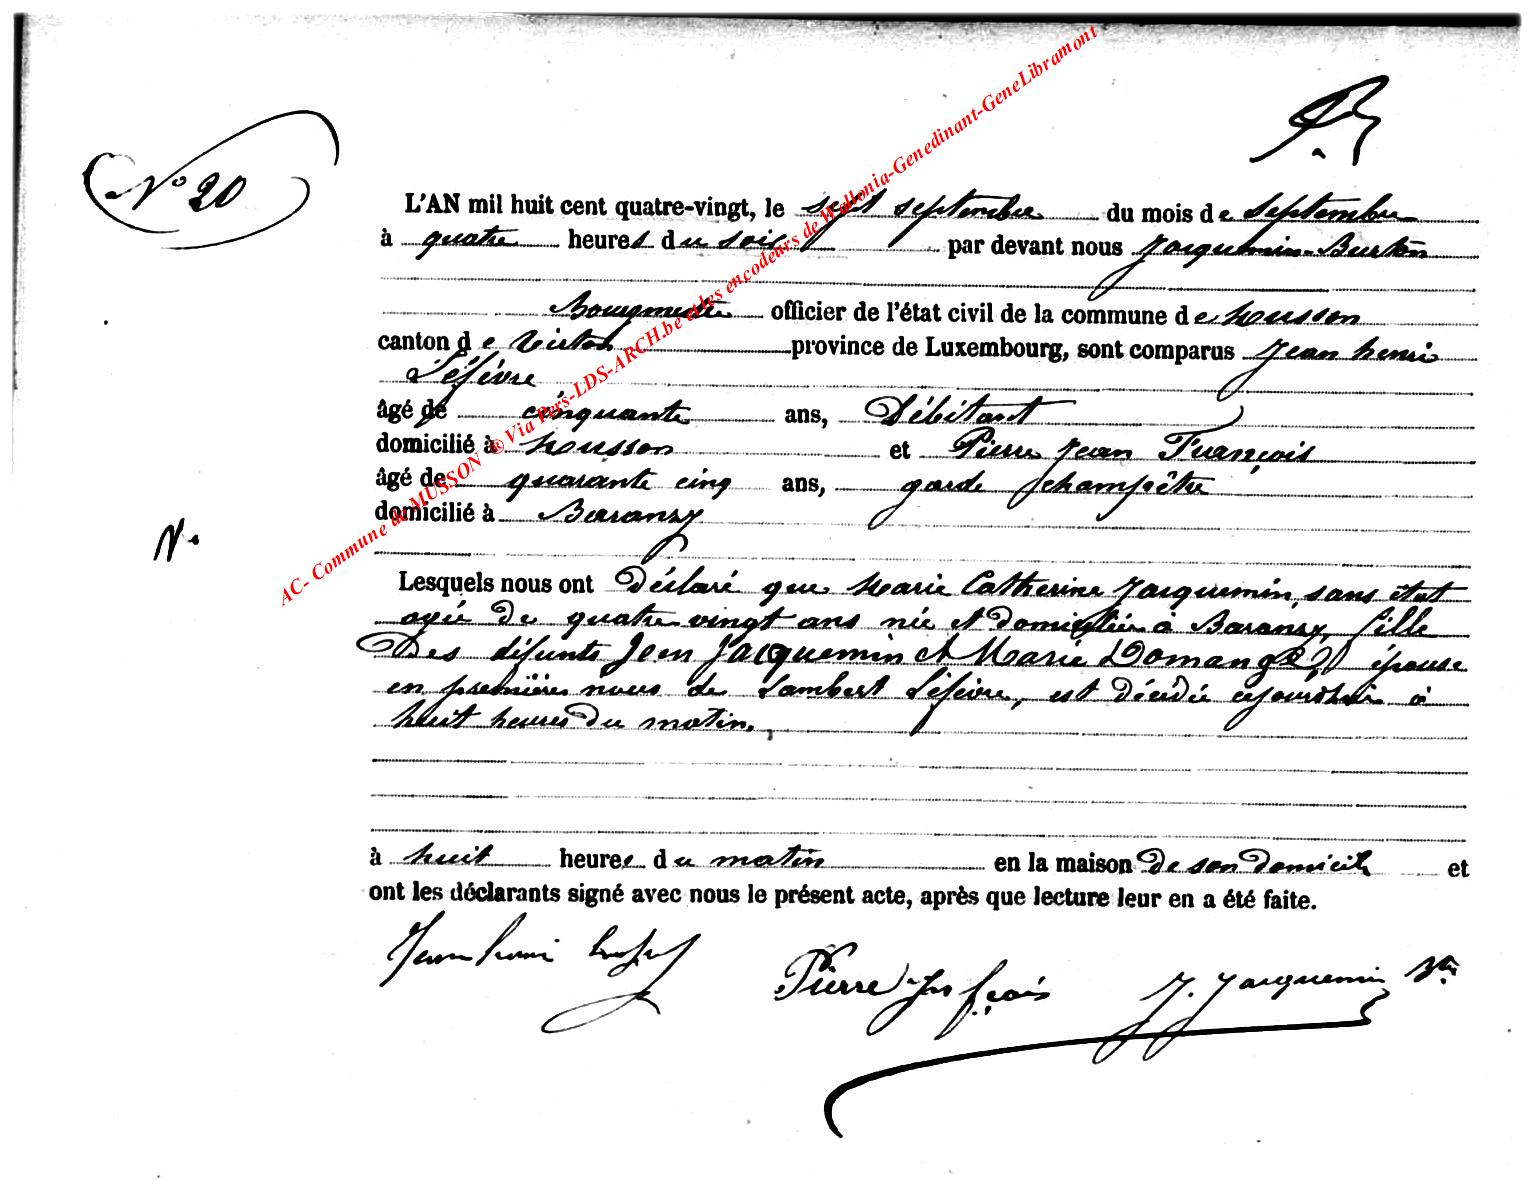 N° 20
L'AN mil huit cent quatre-vingt, le sept septembre du mois de Septembre
à quatre heures du soir par devant nous Jacquemin-Burton
Bourgmestre officier de l'état civil de la commune de Musson
canton de Virton province de Luxembourg, sont comparus Jean henri
Léfèvre
âgé de cinquante ans, Débitant
domicilié à Musson et Pierre Jean François
âgé de quarante cinq ans, garde champêtre
domicilié à Baranzy
N.
Lesquels nous ont Déclaré que Marie Catherine Jacquemin, sans état
agée de quatre vingt ans née et domiciliée à Baranzy, fille
Des défunts Jean Jacquemin et Marie Domange, épouse
en premières noces de Lambert Léfèvre, est décédée cejourdhui à
huit heures du matin.
à huit heures du matin en la maison de son domicile et
ont les déclarants signé avec nous le présent acte, après que lecture leur en a été faite.
Jean henri
Pierre Jn fçois
J. Jacquemin Btn
AC- Commune de MUSSON ® Via Pers-LDS-ARCH.be et les encodeurs de Wallonia-Genedinant-GeneLibramont